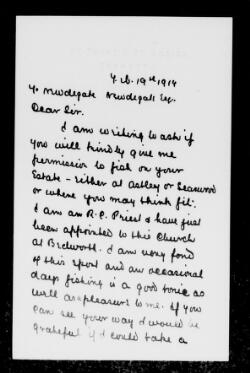 Feb. 19th 1914
To Newdegate Newdegate Esq.
Dear Sir.
I am writing to ask if
you will kindly give me
permission to fish on your
Estate - either at Astley or Seaswood
or where you may think fit.
I am an R.C. Priest & have just
been appointed to this Church
at Bedworth. I am very fond
of this sport and an occasional
days fishing is a good tonic as
well as a pleasure to me. If you
can see your way I would be
grateful if I could take a